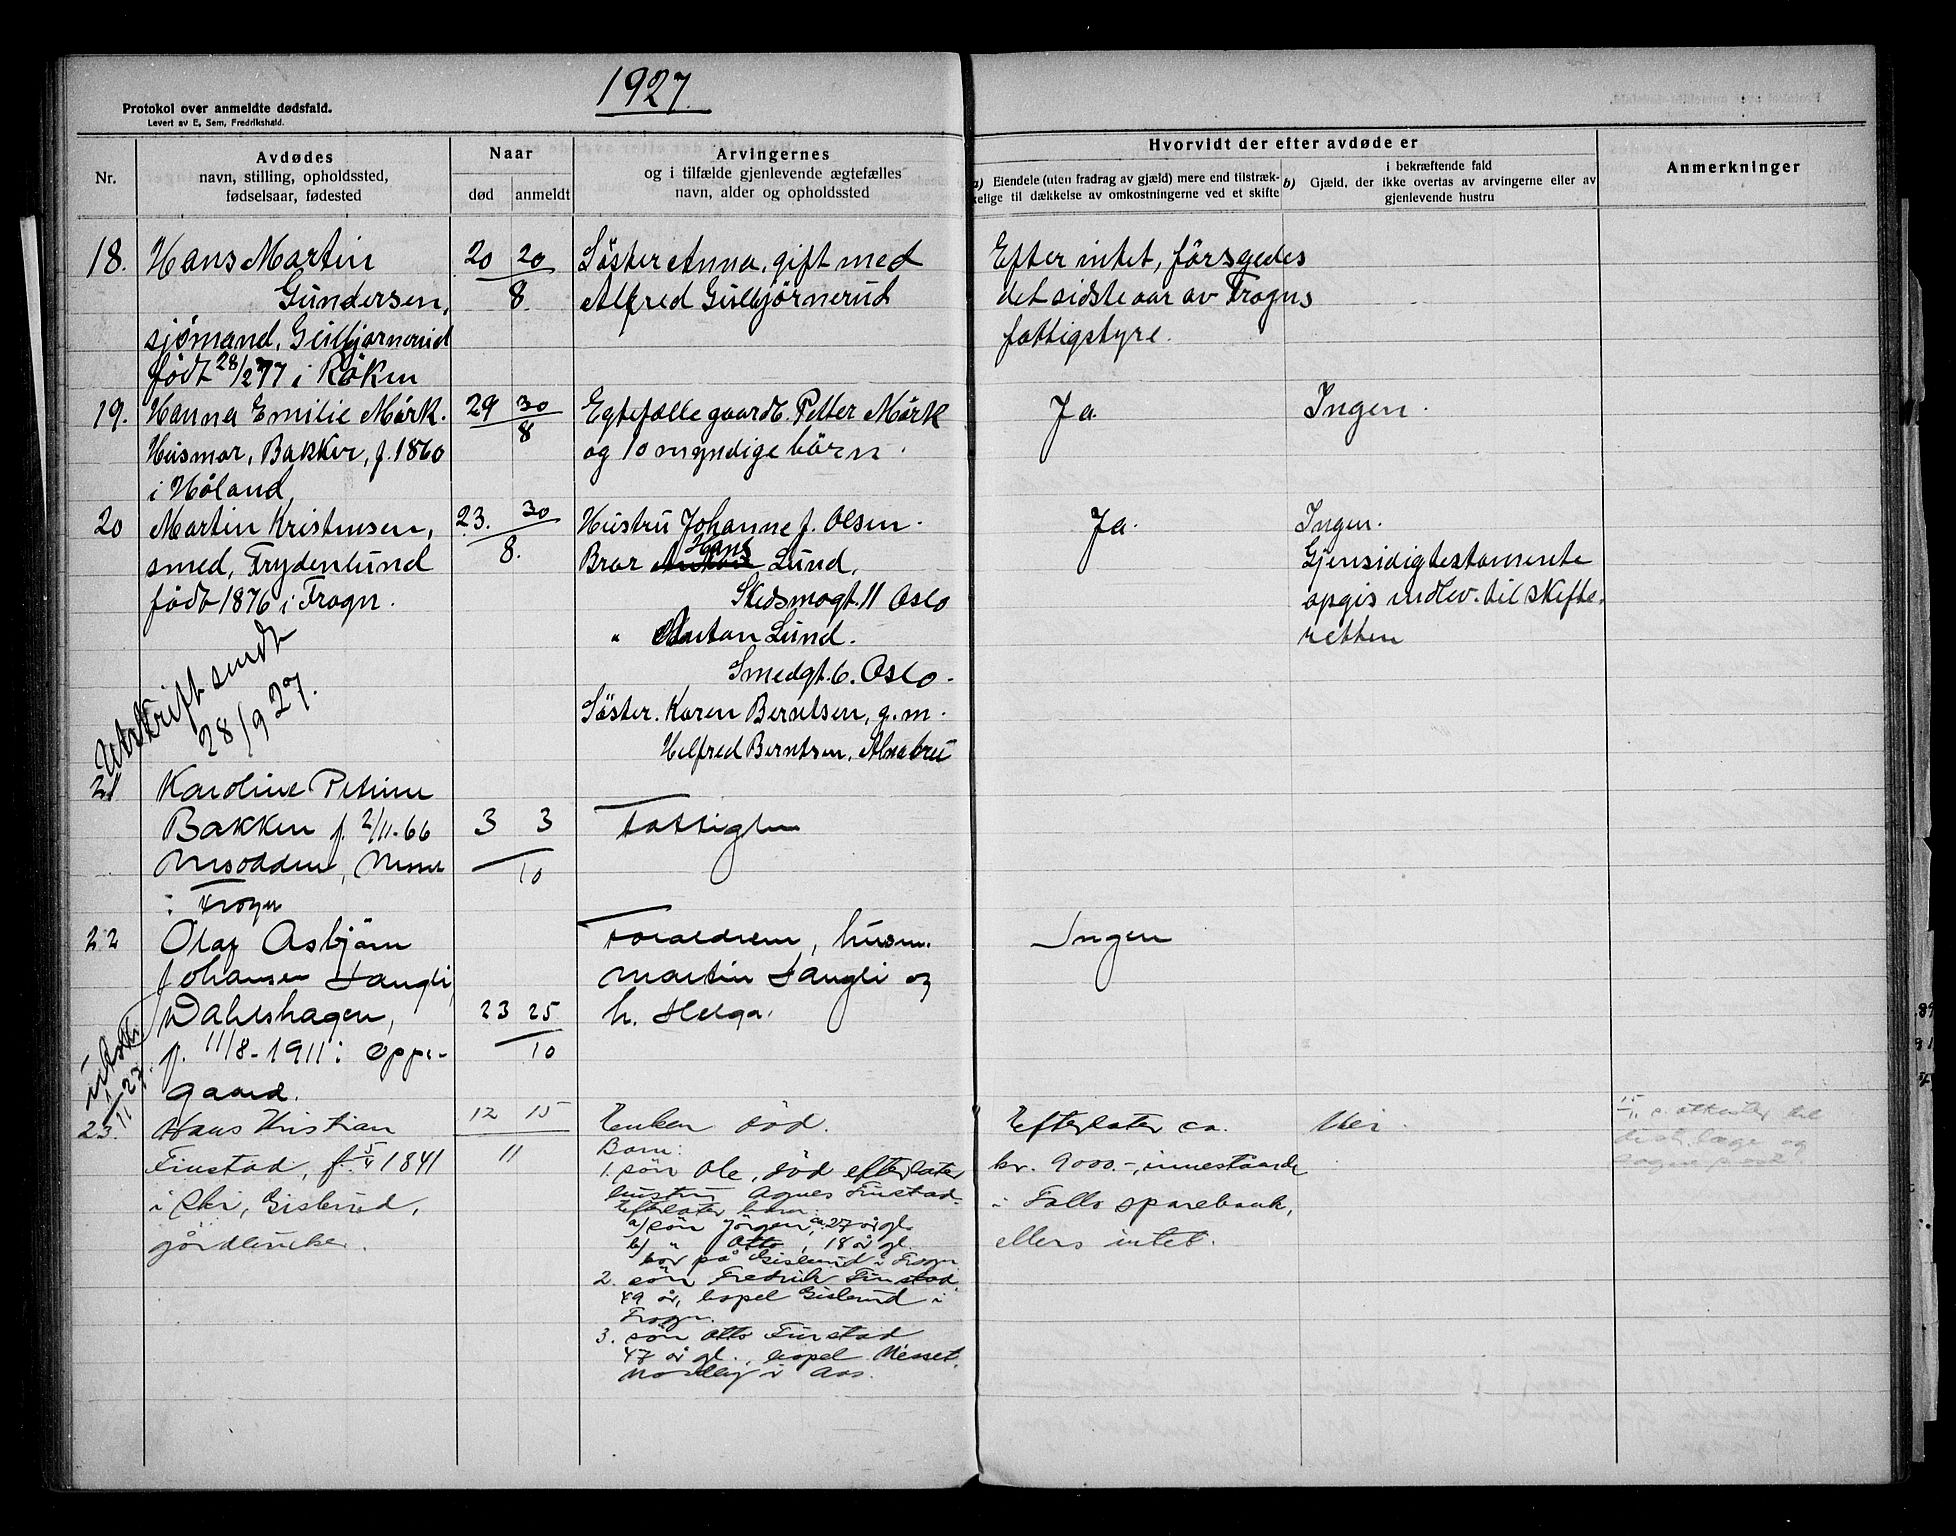 1927.
Protokol over anmeldte dødsfald.
Levert av E, Sem, Fredrikshald.
Nr.
Avdødes
navn, stilling, opholdssted,
fødselsaar, fødested
Naar
død anmeldt
Arvingernes
og i tilfælde gjenlevende ægtefælles
navn, alder og opholdssted
Hvorvidt der efter avdøde er
a) Eiendele (uten fradrag av gjæld) mere end tilstræk-
kelige til dækkelse av omkostningerne ved et skifte
i bekræftende fald
b) Gjæld, der ikke overtas av arvingerne eller av
gjenlevende hustru
Anmerkninger
18. Hans Martin
Gundersen,
sjömand, Gulbjørnerud
födt 28/2 77 i Röken
20 20
8.
Söster Anna, gift med
Alfred Gulbjørnerud
Efter intet, försgedes
det sidste aar av Frogns
fattigstyre.
19. Hanna Emilie Mörk.
Husmor, Bakker, f. 1860
i Höland,
29 30
8
Egtefælle gaardb. Petter Mörk
og 10 myndige börn.
Ja.
Ingen.
20 Martin Kristensen,
smed, Frydenlund
födt 1876 i Frogn.
Utskrift sendt
28/9 27.
23. 30
8.
Hustru Johanne f. Olsen.
Bror Hans Lund,
Skedsmogt. 11 Oslo
" Anton Lund.
Smedgt. 6. Oslo.
Söster. Karen Berntsen, g. m.
Helfred Berntsen, Alnabru
Ja.
Ingen.
Gjensidig testamente
opgis indlev. til skifte-
retten
21 Karoline Petrine
Bakken f. 2/11-66
Nesodden, Nesset
i Frogn
3 3
10
Fattiglem
22 Olaf Asbjörn
Johansen Langli,
Dahlshagen,
f. 11/8-1911 i Oppe-
gaard.
11 27.
23 25
10
Foraldrene, husm.
Martin Langli og
h. Helga.
Ingen
23. Hans Kristian
Finstad, f. 5/4 1841
i Ski, Gislerud,
gårdbruker.
12 15
11
Enken död.
Barn:
1. sön Ole, död efterlater
hustru Agnes Finstad.
Efterlater barn:
a) sön Jörgen, ca. 27 år gl.
b) " Otto, 18 år gl.
bor på Gislerud i Frogn
2. sön Fredrik Finstad,
49 år, bopel Gislerud i
Frogn.
3. sön Otto Finstad
47 år gl., bopel Nesset,
Nordby i Aas.
Efterlater ca.
kr. 9000.-, innestående
i Follo sparebank,
ellers intet.
Nei.
15/11 s. attester til
distr. læge og